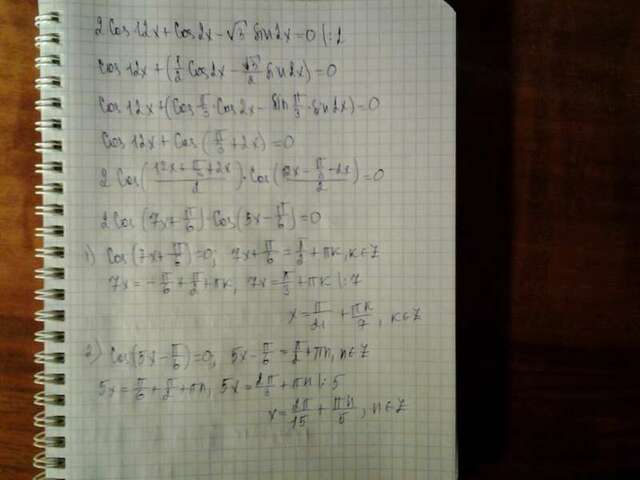 2 cos 12x + cos 2x - √3 sin 2x = 0 |:2
cos 12x + (1/2 cos 2x - √3/2 sin 2x) = 0
cos 12x + (cos π/3 · cos 2x - sin π/3 · sin 2x) = 0
cos 12x + cos (π/3 + 2x) = 0
2 cos ((12x + π/3 + 2x)/2) · cos ((12x - π/3 - 2x)/2) = 0
2 cos (7x + π/6) · cos (5x - π/6) = 0
1) cos (7x + π/6) = 0; 7x + π/6 = π/2 + πk, k ∈ Z
7x = -π/6 + π/2 + πk, 7x = π/3 + πk |:7
x = π/21 + πk/7, k ∈ Z
2) cos (5x - π/6) = 0, 5x - π/6 = π/2 + πn, n ∈ Z
5x = π/6 + π/2 + πn, 5x = 2π/3 + πn |:5
x = 2π/15 + πn/5, n ∈ Z